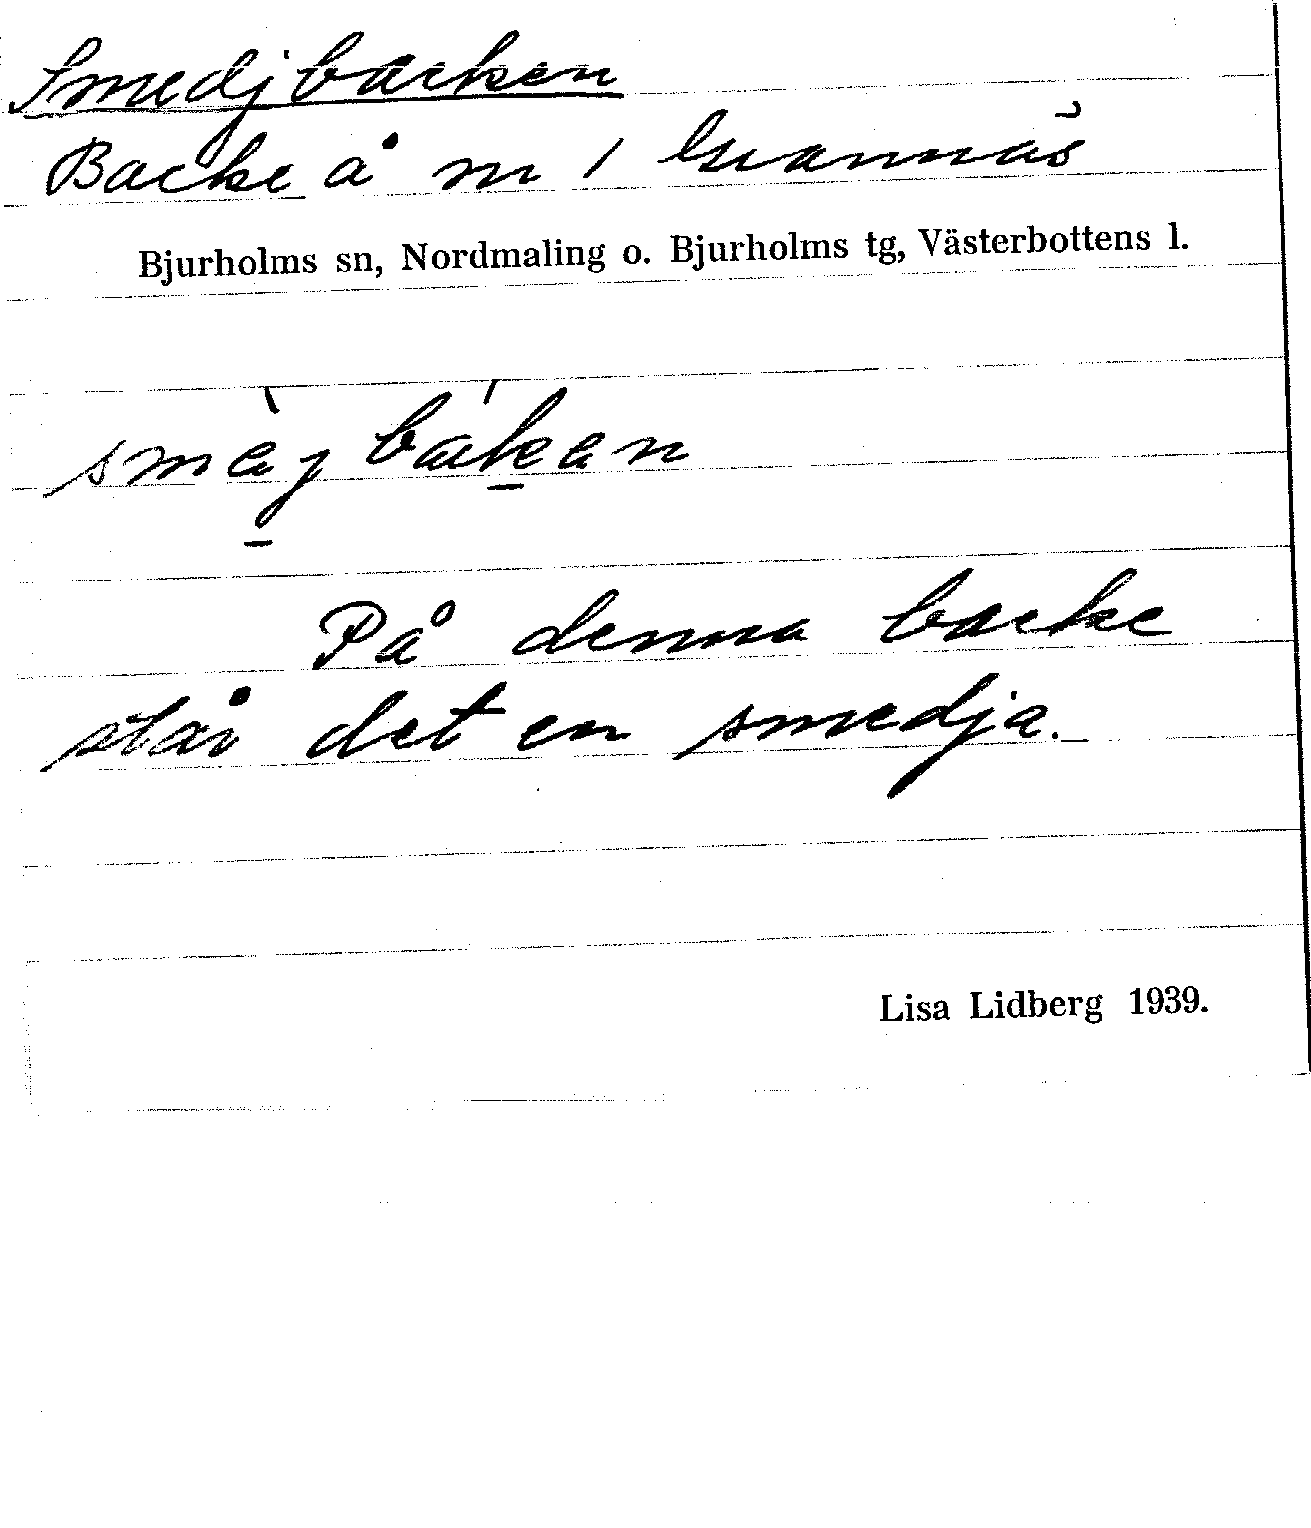 Smedjbacken
Backe å m 1 Grannäs
Bjurholms sn, Nordmaling o. Bjurholms tg, Västerbottens l.
smèjbákan
På denna backe
står det en smedja.
Lisa Lidberg 1939.